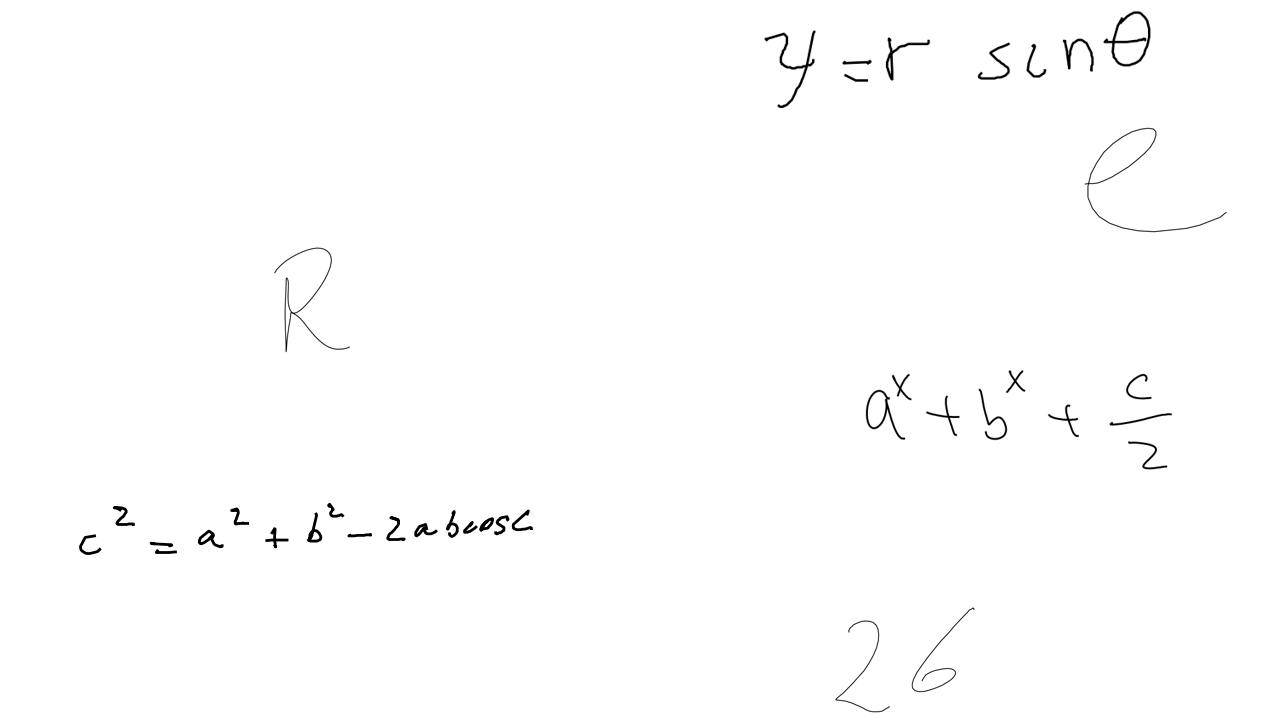 y = r sin θ
e
R
a^x + b^x + c/2
c^2 = a^2 + b^2 - 2 a b cos C
26